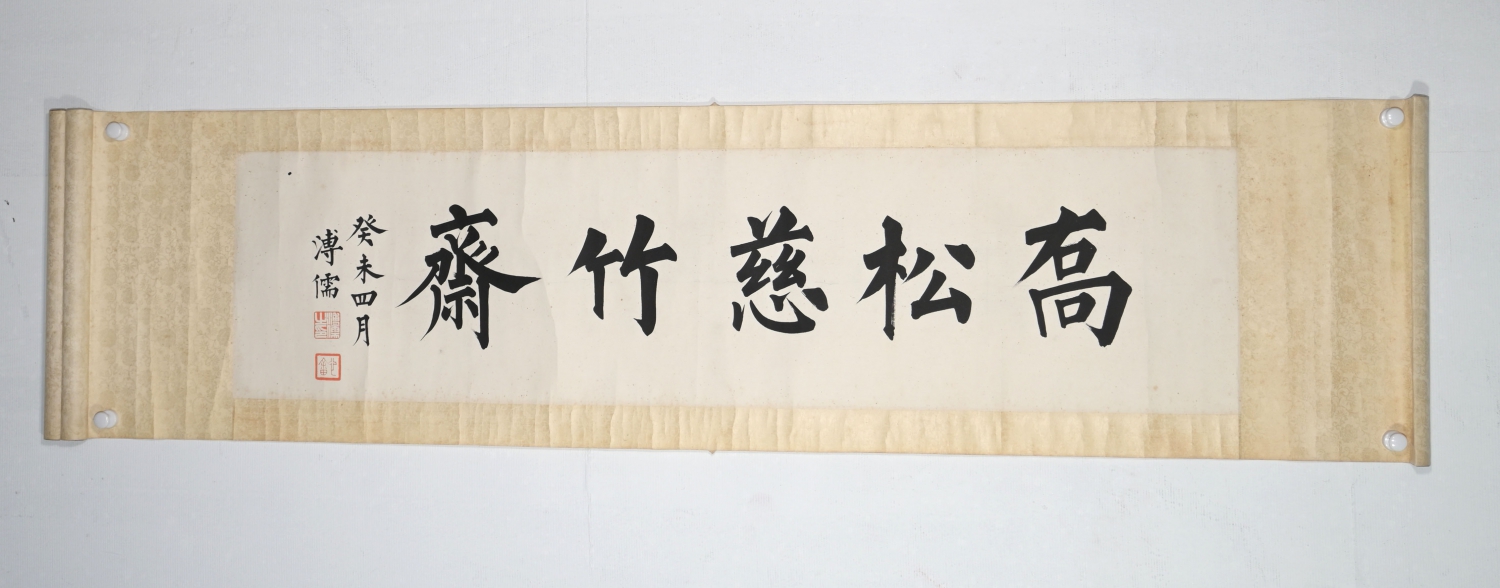 喬松慈竹齋
癸未四月
溥儒